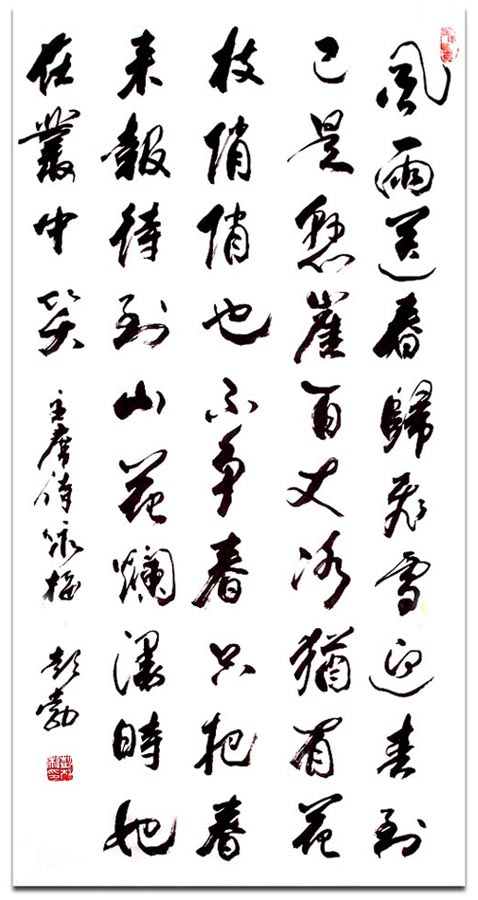 風雨送春歸飛雪迎春到
已是懸崖百丈冰猶有花
枝俏俏也不争春只把春
来報待到山花爛漫時她
在叢中笑 主席诗咏梅 彭勃